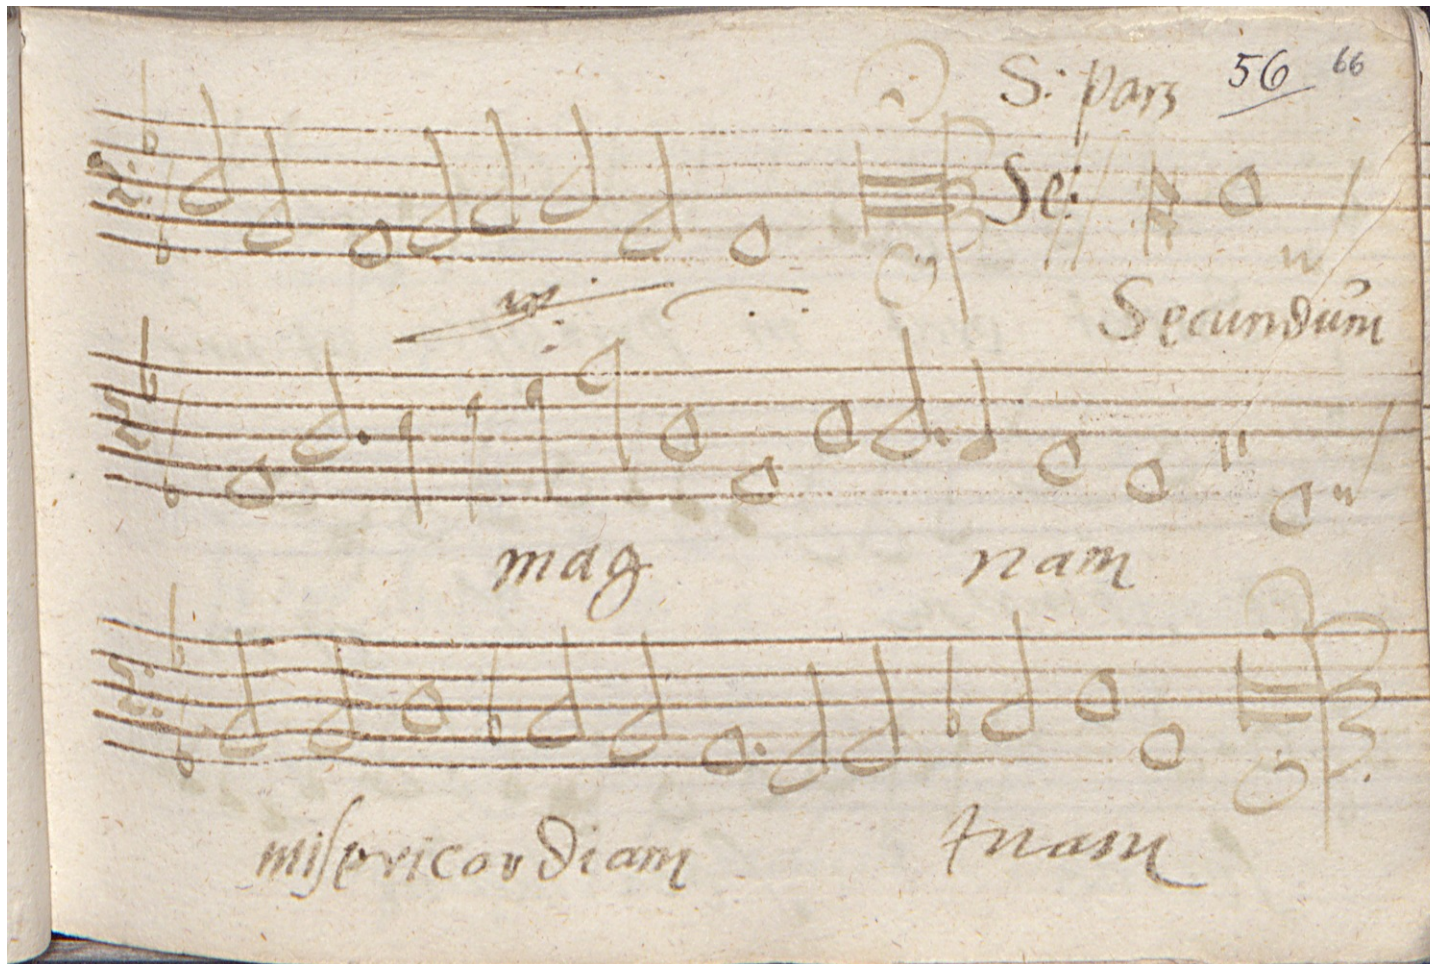 S: pars 56 66
Se:
Secundūm
mag nam
misericordiam tuam